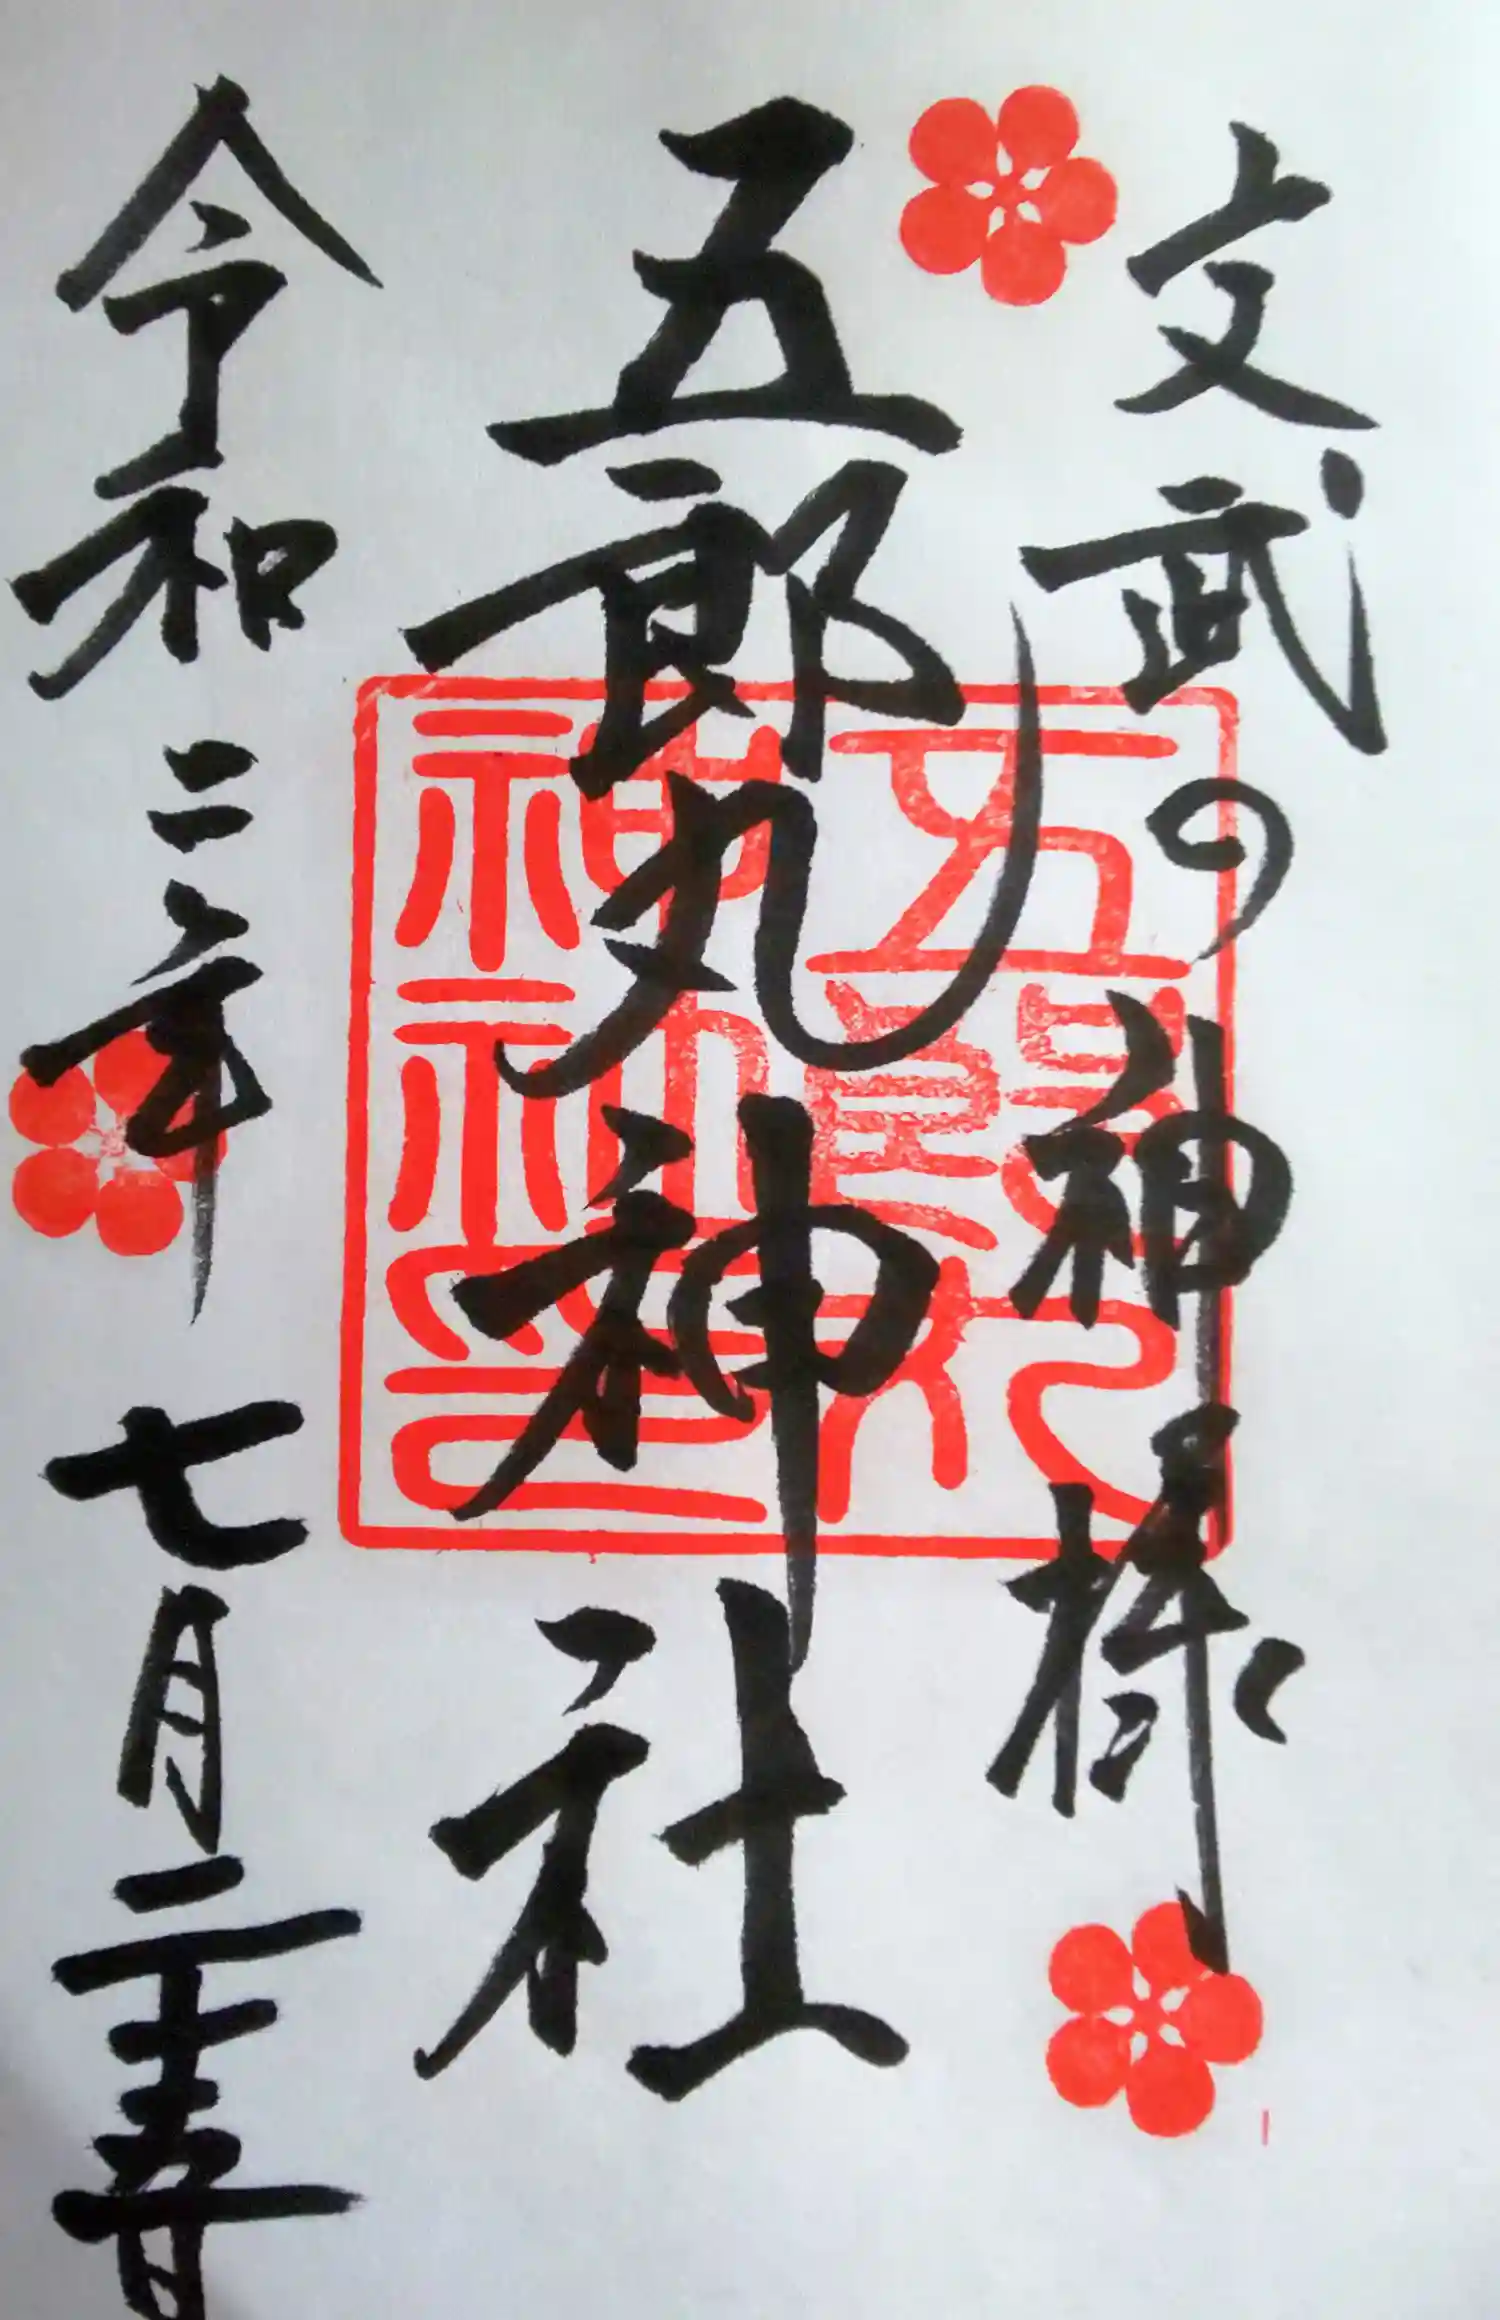 文武の神様
五郎丸神社
五郎丸神社印
令和二年七月二十五日